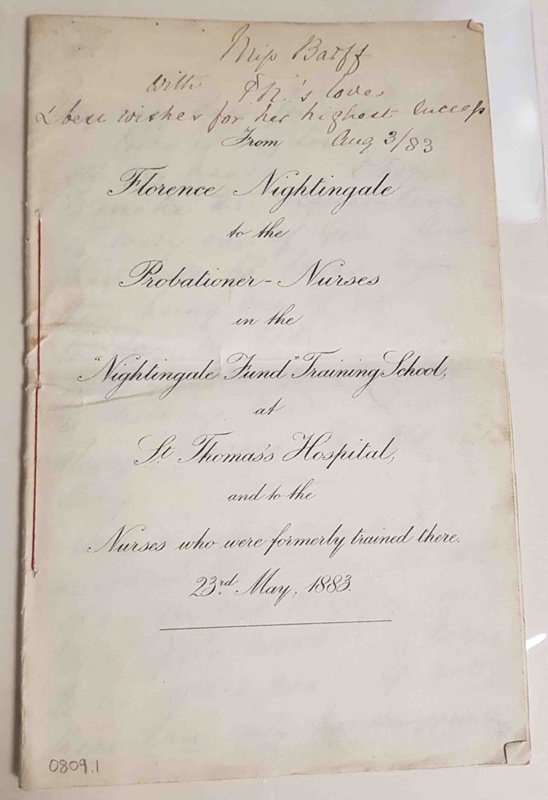 Miss Barff
with F.N.'s love
& best wishes for her highest success
Aug 3/83
From
Florence Nightingale
to the
Probationer-Nurses
in the
"Nightingale Fund" Training School,
at
St Thomas's Hospital,
and to the
Nurses who were formerly trained there.
23rd May, 1883.
0809.1